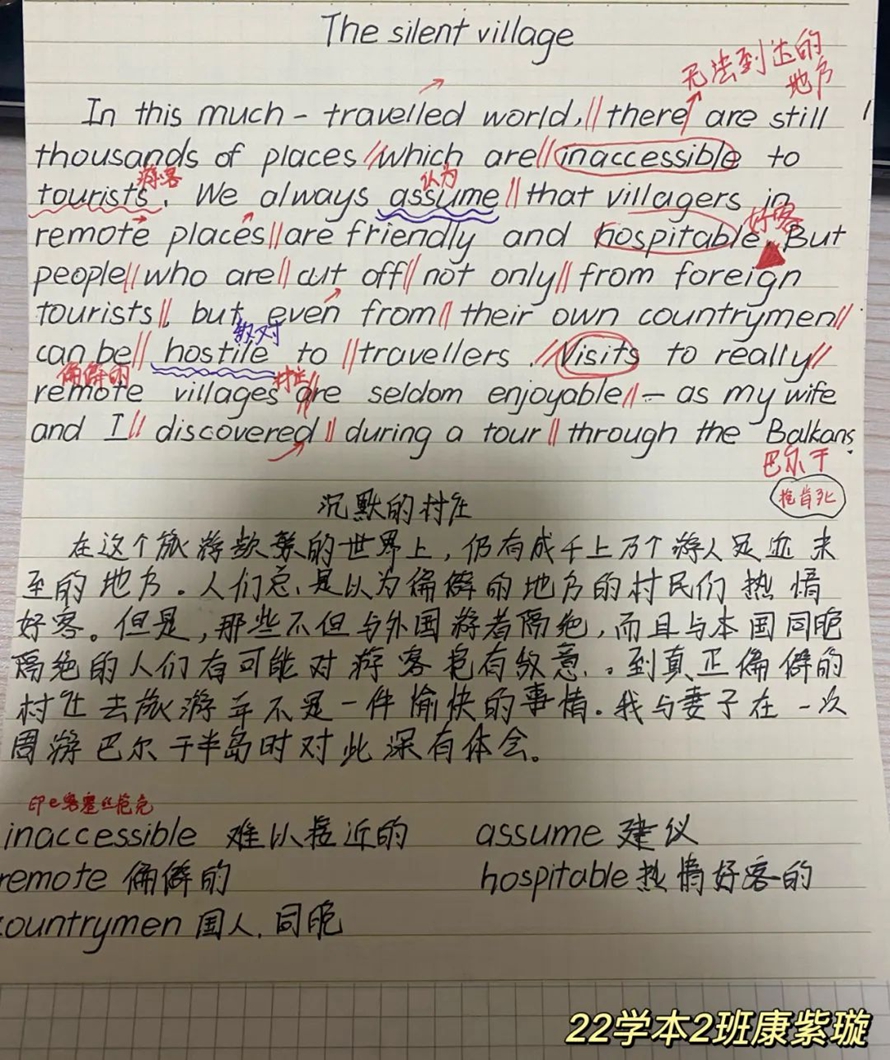 The silent village
无法到达的
地方
In this much-travelled world, // there are still
thousands of places // which are // inaccessible to
游客 认为
tourists. We always assume // that villagers in
好客
remote places // are friendly and hospitable. But
people // who are // cut off // not only // from foreign
tourists //, but even from // their own countrymen //
敌对
can be // hostile to // travellers. // Visits to really //
偏僻的 村庄
remote villages // are seldom enjoyable // — as my wife
and I // discovered // during a tour // through the Balkans.
巴尔干
沉默的村庄
在这个旅游频繁的世界上，仍有成千上万个游人足迹未
至的地方。人们总是以为偏僻的地方的村民们热情
好客。但是，那些不但与外国游者隔绝，而且与本国同胞
隔绝的人们有可能对游客抱有敌意。到真正偏僻的
村庄去旅游并不是一件愉快的事情。我与妻子在一次
周游巴尔干半岛时对此深有体会。
inaccessible 难以接近的 assume 建议
remote 偏僻的 hospitable 热情好客的
countrymen 国人，同胞
22学本2班康紫璇